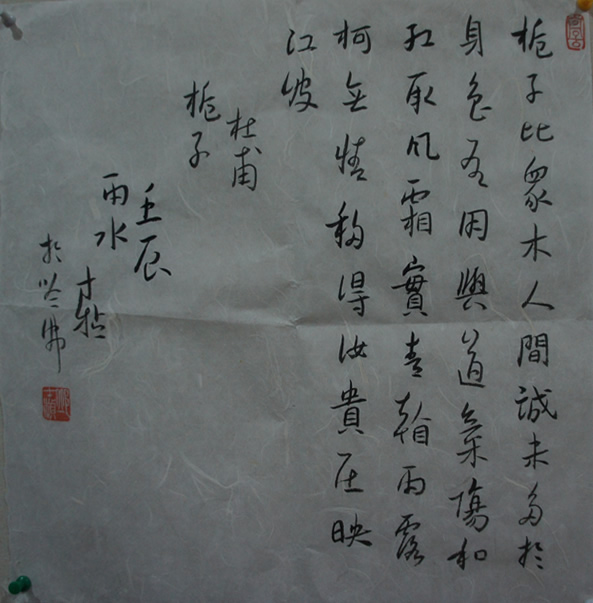 栀子比眾木人間誠未多於
身色有用與道氣傷和
紅取風霜實青看雨露
柯無情移得汝貴在映
江波
杜甫
栀子
壬辰
雨水
於佛